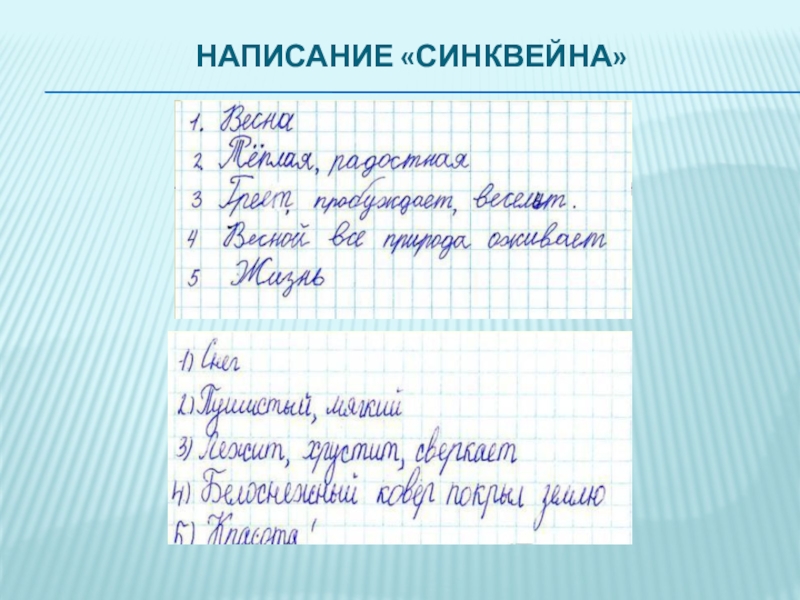 НАПИСАНИЕ «СИНКВЕЙНА»
1. Весна
2 Тёплая, радостная
3 Греет, пробуждает, веселит.
4 Весной все природа оживает
5 Жизнь
1) Снег
2) Пушистый, мягкий
3) Лежит, хрустит, сверкает
4) Белоснежный ковёр покрыл землю
5) Красота!